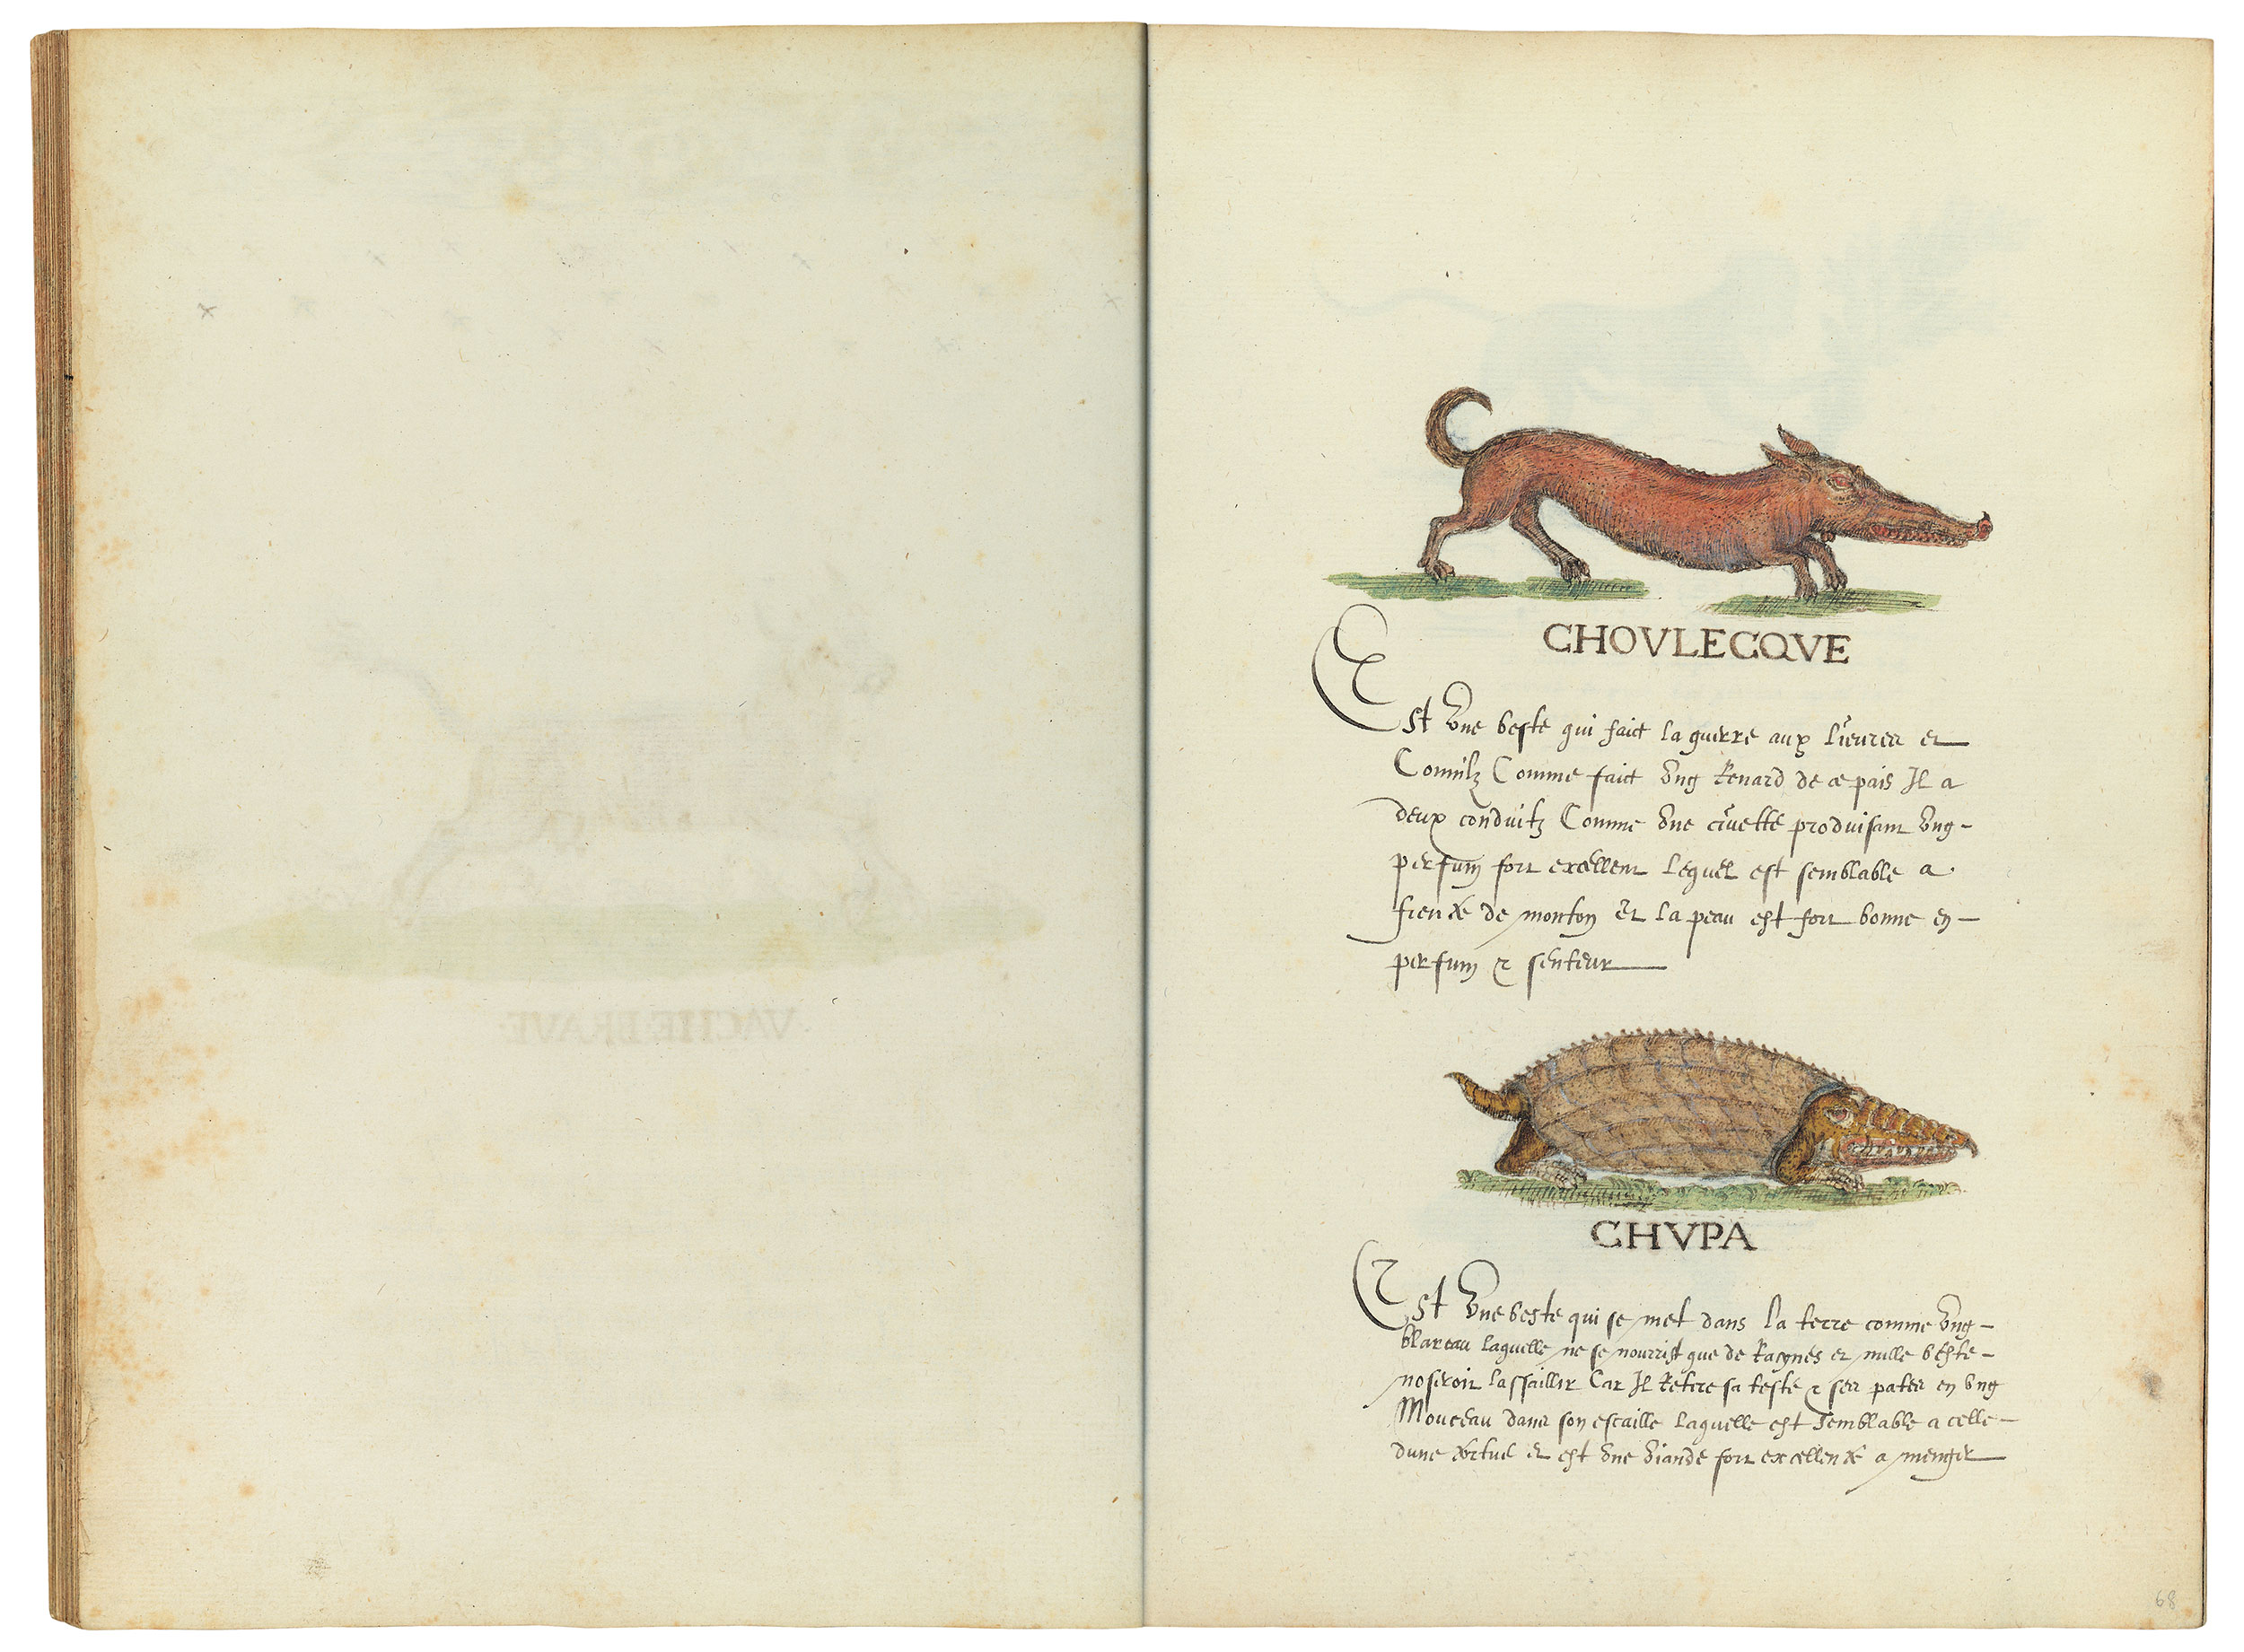 VACHE BRAVE
CHOVLECQVE
Est Vne beste qui faict la guerre aux lieures et
Connilz Comme faict Vng Renard de ce pais Il a
deux conduitz Comme Vne civette produisant Vng
perfum fort excellent lequel est semblable a
fience de monton Et la peau est fort bonne en
perfum & senteur
CHVPA
Est Vne beste qui se met dans la terre comme Vng
blareau laquelle ne se nourrist que de Racynes et nulle beste
noseroit lassaillir Car Il Retire sa teste & ses pates en Vng
Monceau dans son escaille laquelle est semblable a celle
dune tortue et est Vne Viande fort excellente a menger
68